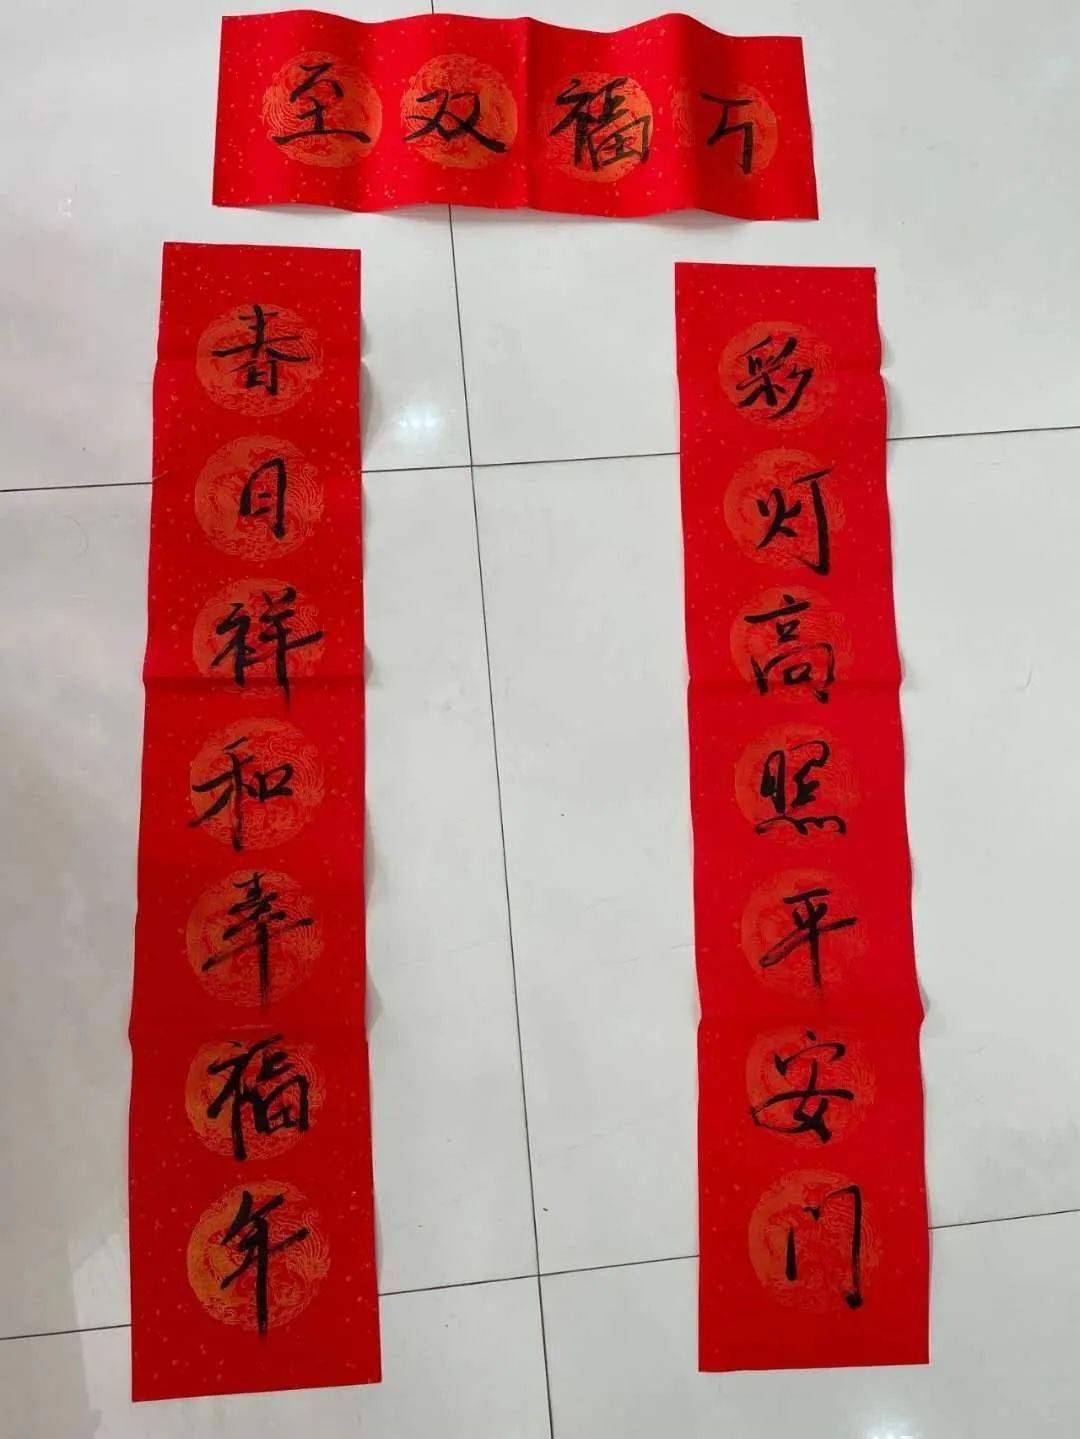 福双至
彩灯高照平安门
春日祥和幸福年